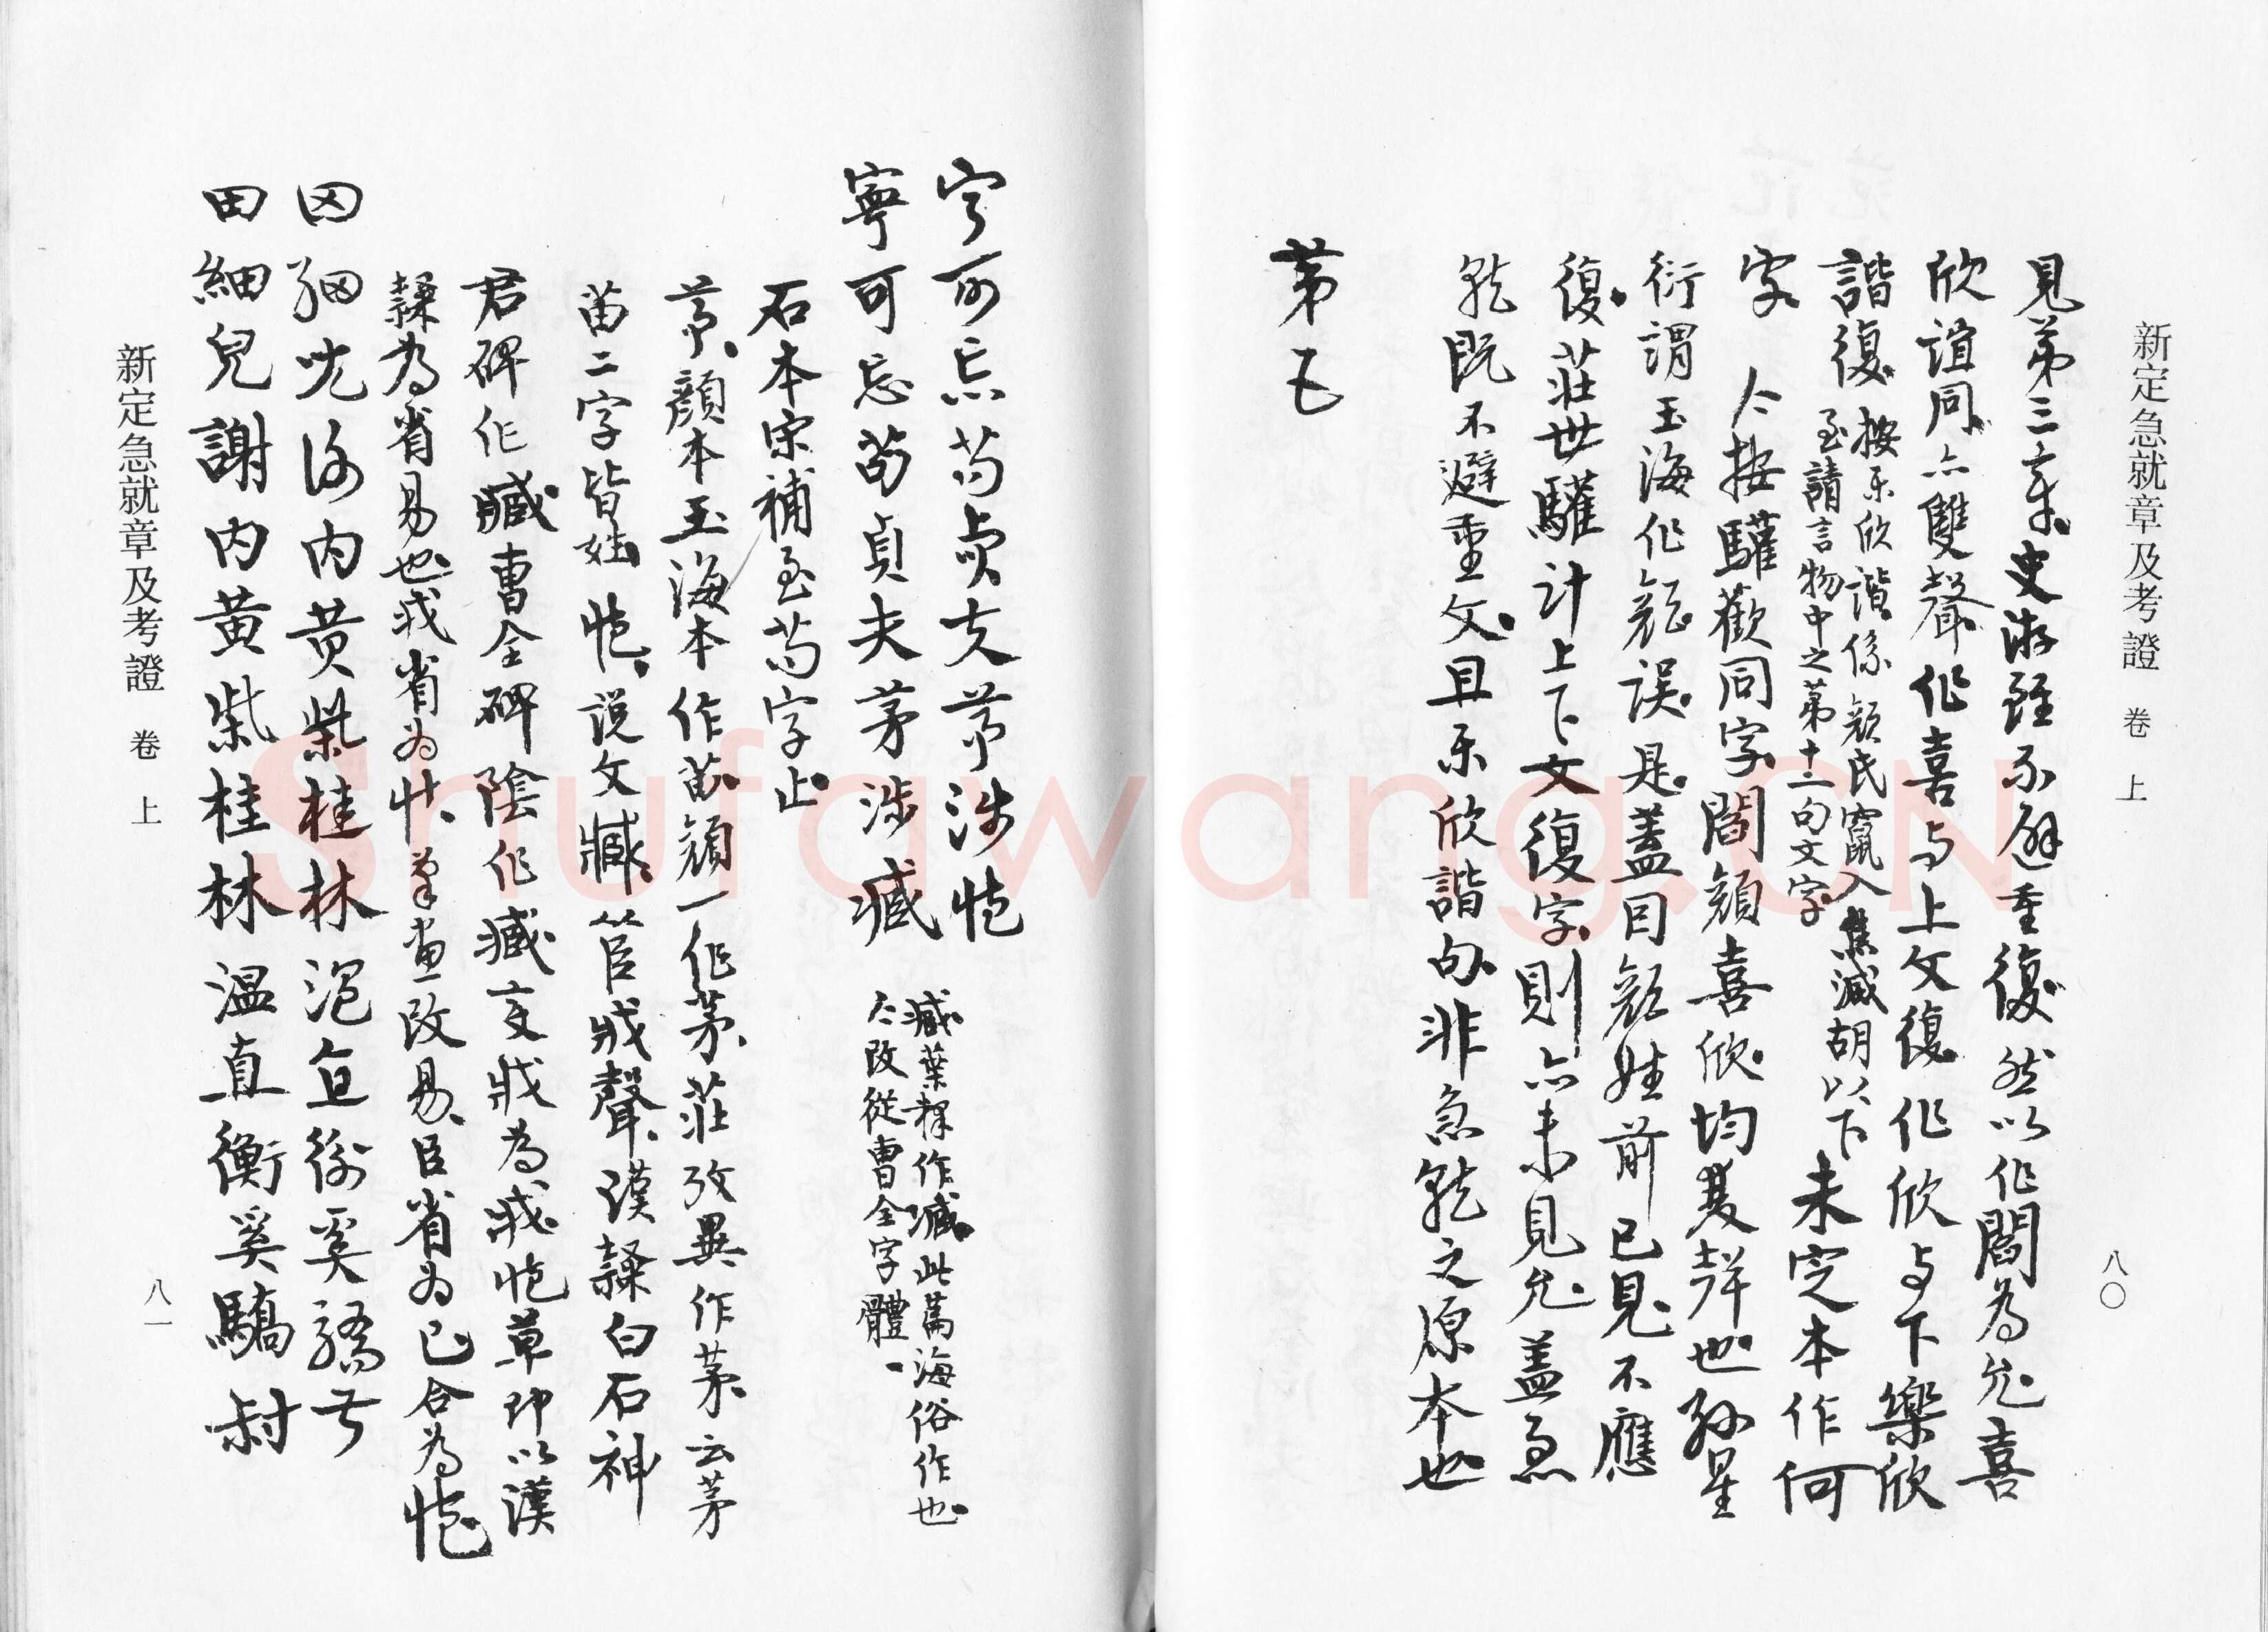 新定急就章及考證 卷上
八〇
見第三章史游雖不避重復然以作閻為允喜
欣誼同亦雙聲作喜与上文復作欣与下樂欣
諧復
按樂欣諧係顏氏竄入焦滅胡以下
至請言物中之第十二句文字
未定本作何
字 今按驩歡同字閻顏喜欣均雙聲也孫星
衍謂玉海作顏誤是蓋因顏姓前已見不應
復莊世驩計上下文復字則亦未見允蓋急
就既不避重文且樂欣諧句非急就之原本也
第五
寧可忘苟貞夫茅涉
寧可忘苟貞夫茅涉臧
臧葉釋作臧此萬海俗作也
今改從曹全字體
石本宋補至苟字止
茅顏本玉海本作苗顏一作茅莊攷異作茅云茅
苗二字皆姓 說文臧從臣戕聲漢隸白石神
君碑作臧曹全碑陰作臧變戕為戕 草即以漢
隸為省易也戕省為忄筆畫改易臣省為已合為
田細兒謝内黃柴桂林溫直衡奚驕叔
田細兒謝内黃柴桂林溫直衡奚驕尌
新定急就章及考證 卷上
八一
Shufawang.CN